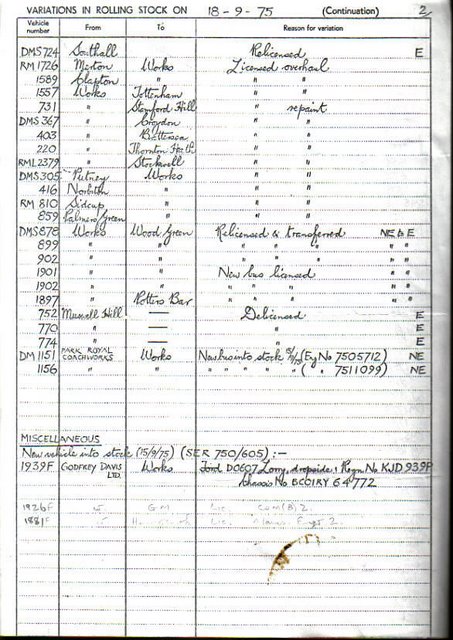 VARIATIONS IN ROLLING STOCK ON 18-9-75 (Continuation) 2
Vehicle number From To Reason for variation
DMS 724 Southall Relicensed E
RM 1726 Merton Works Licensed overhaul
1589 Clapton " " "
1557 Works Tottenham " "
731 " Stamford Hill " repaint
DMS 367 " Croydon " "
403 " Battersea " "
220 " Thornton Heath " "
RML 2379 " Stockwell " "
DMS 305 Putney Works " "
416 Norbiton " " "
RM 810 Sidcup " " "
859 Palmers Green " " "
DMS 878 Works Wood Green Relicensed & transferred NE & E
899 " " " " " "
902 " " " " " "
1901 " " New bus licensed " "
1902 " " " " " " "
1897 " Potters Bar " " " " "
752 Muswell Hill — Delicensed E
770 " — " E
774 " — " E
DM 1151 PARK ROYAL COACHWORKS Works New bus into stock (Eng No 7505712) NE
1156 " " " " " " ( " 7511099) NE
MISCELLANEOUS
New vehicle into stock (15/9/75) (SER 750/605) :—
1939F GODFREY DAVIS LTD. Works Ford D0607 Lorry, dropside, Regn No KJD 939P
Chassis No BCO1RY 64772
1926F G.M. Lic.
1881F Lic.